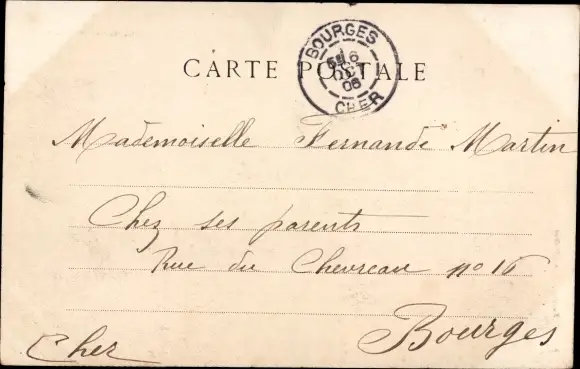 BOURGES
6
OCT
06
CHER
CARTE POSTALE
Mademoiselle Fernande Martin
Chez ses parents
Rue du Chevreau no 16
Bourges
Cher